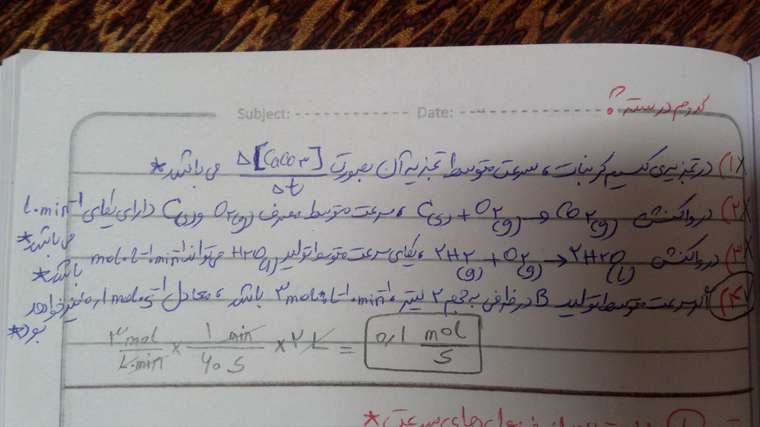 کدوم درسته ؟
Subject: Date:
(۱ در تجزیه‌ی کلسیم کربنات، سرعت متوسط تجزیه آن بصورت Δ[CaCO۳]/Δt می باشد*
(۲ در واکنش C(s) + O۲(g) → CO۲(g) ، سرعت متوسط مصرف O۲(g) و C(s) دارای یکای l.min⁻¹ می باشد*
(۳ در واکنش ۲H۲(g) + O۲(g) → ۲H۲O(l) ، یکای سرعت متوسط تولید H۲O(l) می تواند mol.l⁻¹.min⁻¹ باشد*
(۴ اگر سرعت متوسط تولید B در ظرفی به حجم ۲ لیتر، ۳mol.l⁻¹.min⁻¹ باشد، معادل ۰,۱ mol.s⁻¹ نیز خواهد بود*
۳mol/L.min × 1 min/۶۰ s × ۲ L = ۰,۱ mol/s